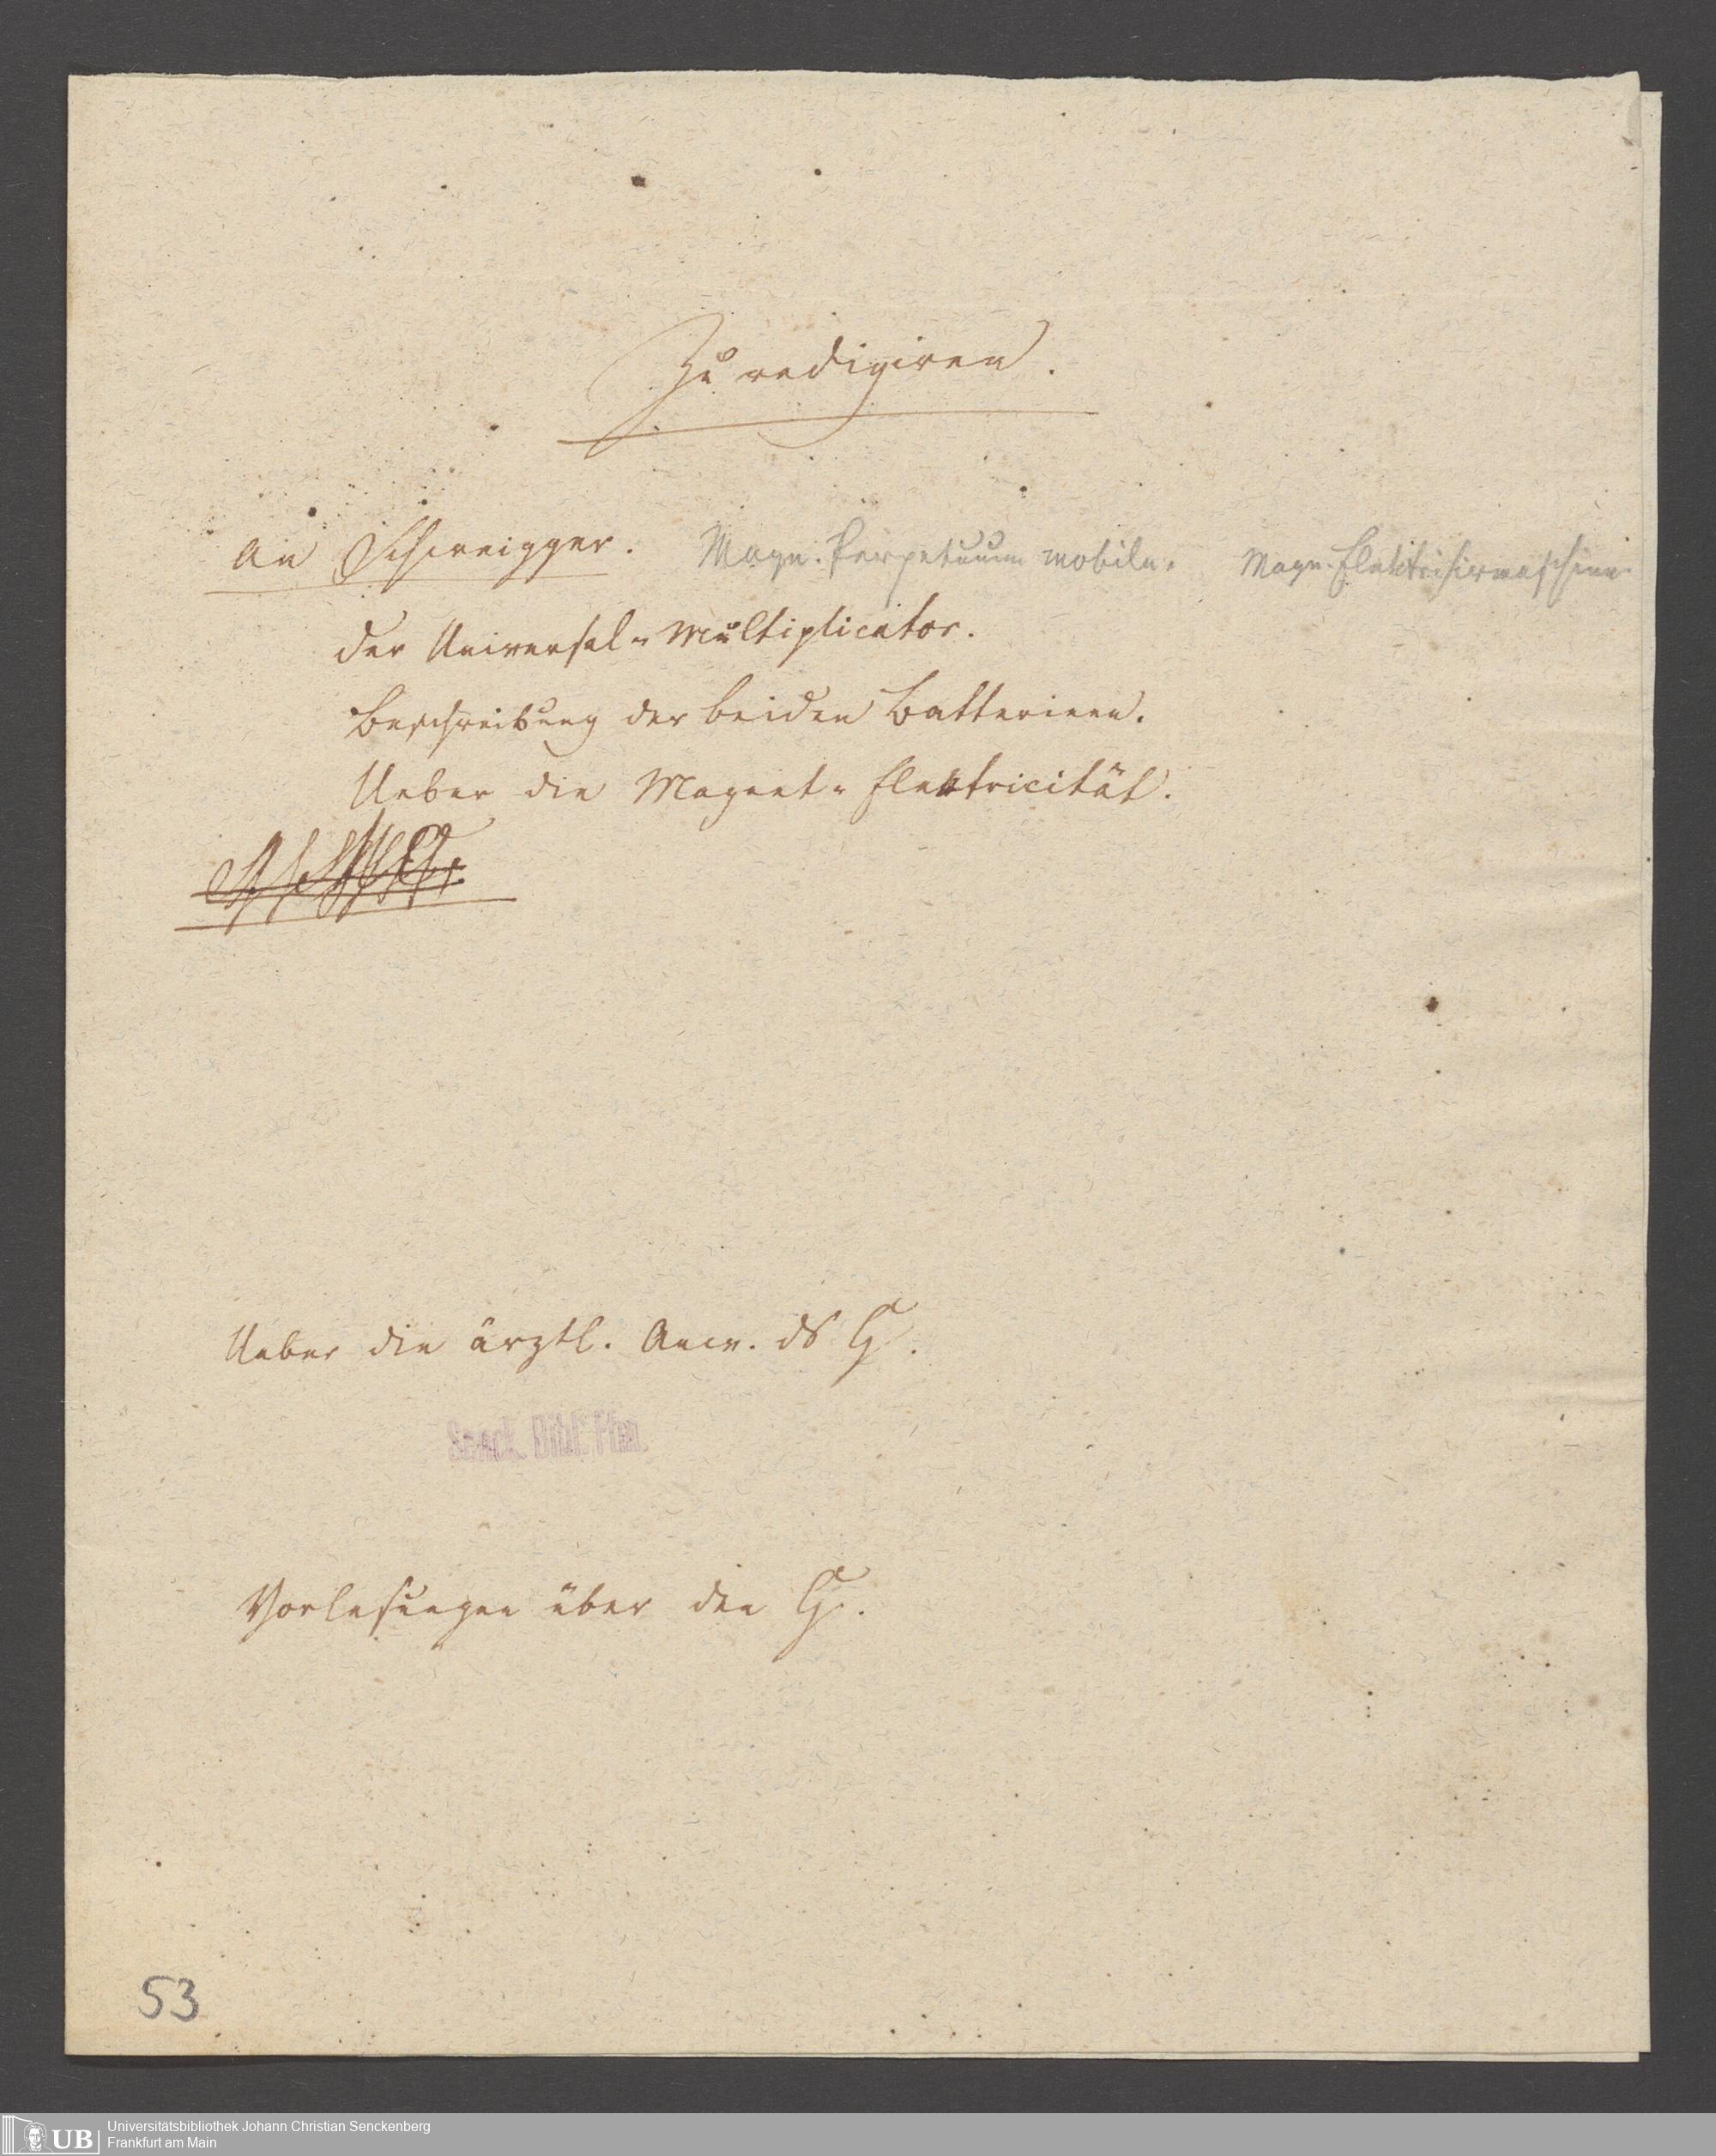 Zu redigiren.
An Schweigger. Magn. Perpetuum mobile. Magn. Elektrisirmaschine.
Der Universal-Multiplicator.
Beschreibung der beiden Batterieen.
Ueber die Magnet-Elektricität.
Ueber die ärztl. Anw. ds G.
Senck. Bibl. Ffm.
Vorlesungen über den G.
53
UB Universitätsbibliothek Johann Christian Senckenberg
Frankfurt am Main